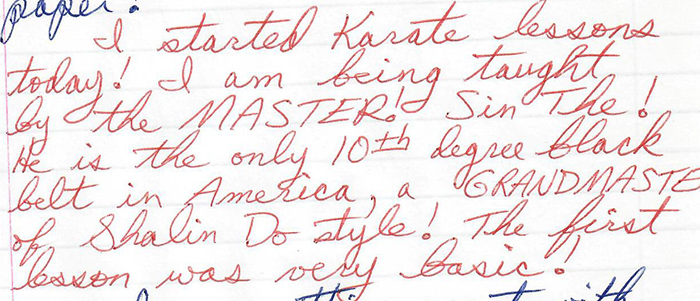 paper!
I started Karate lessons
today! I am being taught
by the MASTER! Sin The!
He is the only 10th degree black
belt in America, a GRANDMASTE
of Shalin Do style! The first
lesson was very basic!